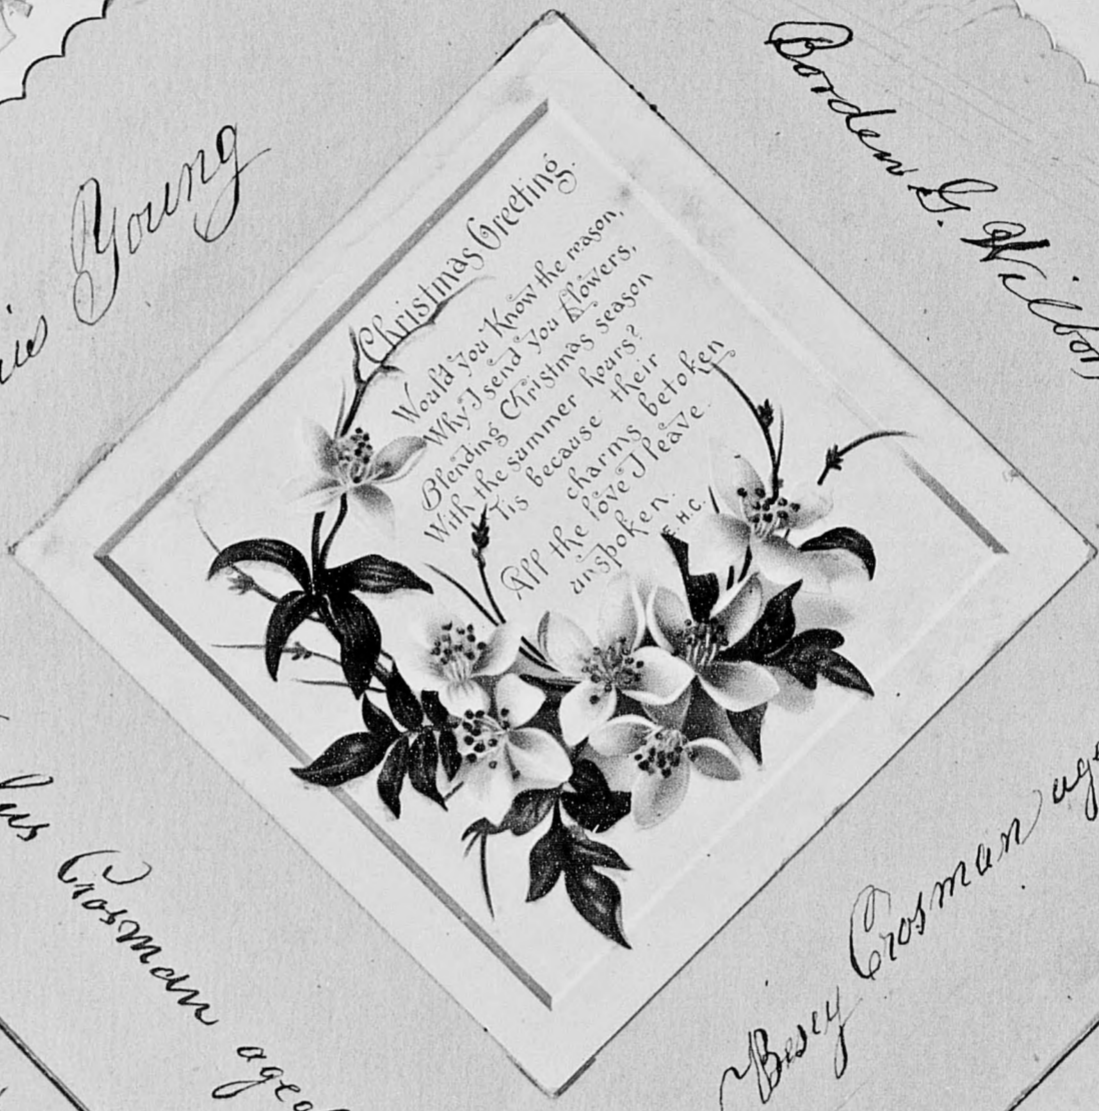 Christmas Greeting.
Would you Know the reason,
Why I send you flowers,
Blending Christmas season
With the summer hours?
Tis because their
charms betoken
All the love I leave
unspoken.
E.H.C.
Young
Borden G. Wilbor
Crosman aged
Besey Crosman age